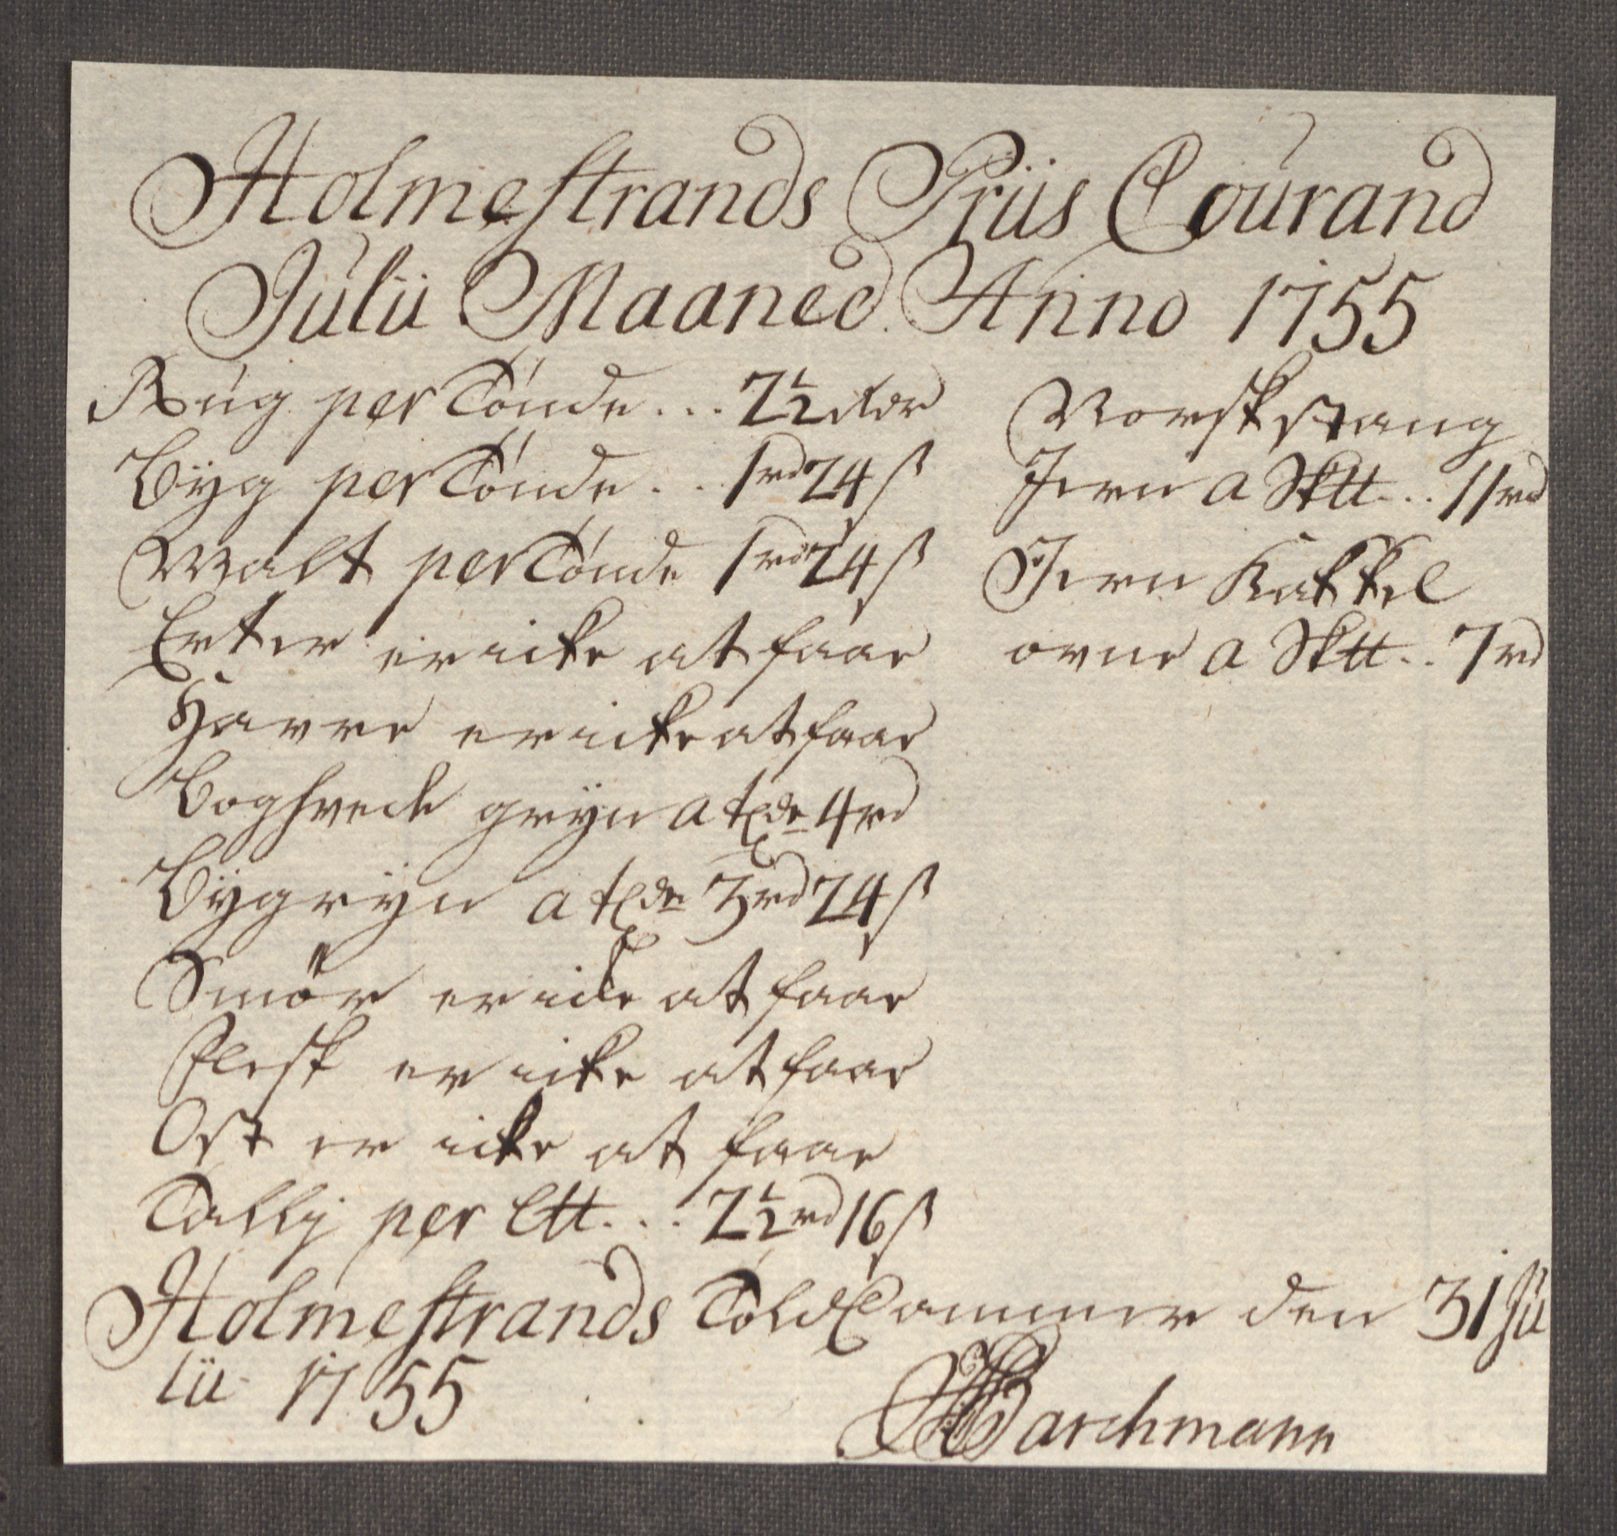 Holmestrands Priis Courand
Julii Maaned Anno 1755
Rúg per Tónde... 2½ Rdr
Bÿg per Tónde... 1rd 24 ß
Malt per Tónde 1rd 24 ß
Erter er icke at faae
Havre er icke at faae
Boghvede grÿn a tde 4rd
Bÿgrÿn a tde 3rd 24 ß
Smör er icke at faae
Flesk er icke at faae
Ost er icke at faae
Tallij per Ctt... 2½ rd 16 ß
Norsk stang
Jern a Sktt... 11rd
Jern Kakkel
ovne a Sktt.. 7rd
Holmestrands Told Cammer den 31 Ju
lii 1755
Barchmann